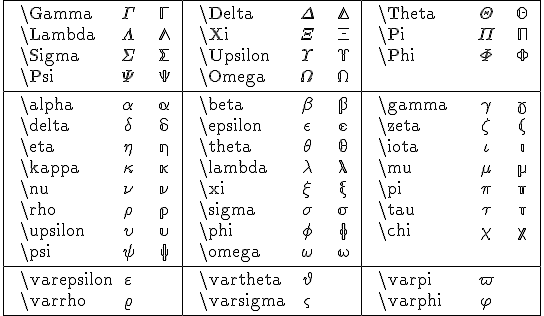 \Gamma 𝛤 ℾ \Delta 𝛥 Δ \Theta 𝛩 Θ
\Lambda 𝛬 Λ \Xi 𝛯 Ξ \Pi 𝛱 Π
\Sigma 𝛴 Σ \Upsilon 𝛶 ϒ \Phi 𝛷 Φ
\Psi 𝛹 Ψ \Omega 𝛺 Ω
\alpha α α \beta β β \gamma γ ɣ
\delta δ δ \epsilon ϵ ϵ \zeta ζ ζ
\eta η η \theta θ θ \iota ι ι
\kappa κ κ \lambda λ λ \mu μ μ
\nu ν ν \xi ξ ξ \pi π π
\rho ρ ρ \sigma σ σ \tau τ τ
\upsilon υ υ \phi ϕ ϕ \chi χ χ
\psi ψ ψ \omega ω ω
\varepsilon ε \vartheta ϑ \varpi ϖ
\varrho ϱ \varsigma ς \varphi φ